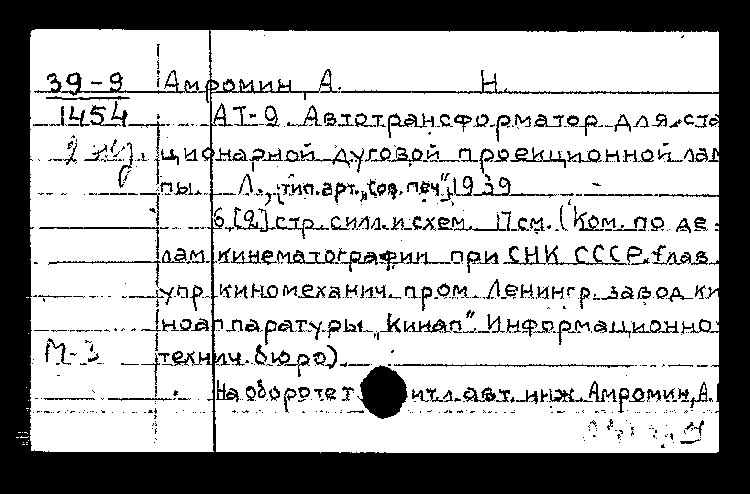 39-9
1454
2 экз.
М-3
Амромин, А. Н.
АТ-9. Автотрансформатор для ста
ционарной дуговой проекционной лам
пы. Л., тип. арт. „Сов. печ", 1939
6, [2] стр. с илл. и схем. 17 см. (Ком. по де-
лам кинематографии при СНК СССР. Глав.
упр. киномеханич. пром. Ленингр. завод ки
ноаппаратуры „Кинап". Информационно-
технич. бюро).
На обороте т итл. авт. инж. Амромин, А.